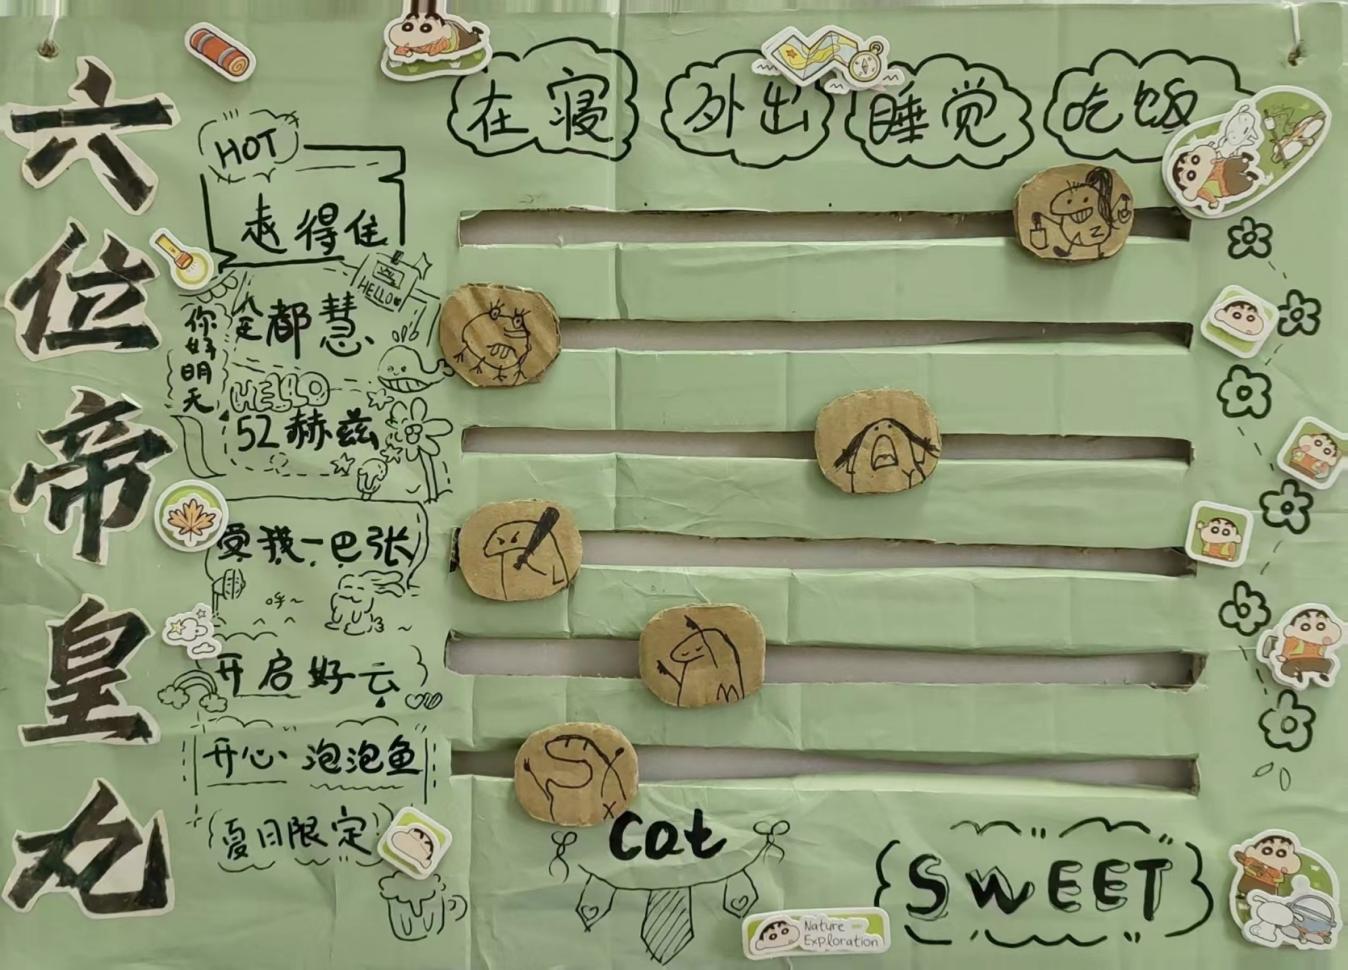 六位帝皇丸
在寝 外出 睡觉 吃饭
HOT
得住
HELLO
都慧
你好明天
HELLO
52赫兹
受我一巴张
呼~
开启好云
开心 泡泡鱼
夏日限定
Cat
SWEET
Nature
Exploration